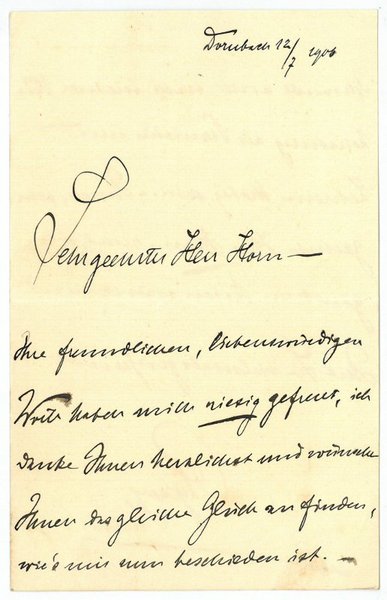 Dornbach 12/7 1906
Sehrgeehrter Herr Horn –
Ihre freundlichen, liebenswürdigen
Worte haben mich riesig gefreut, ich
danke Ihnen herzlichst und wünsche
Ihnen das gleiche Glück zu finden,
wie's mir nun beschieden ist. –